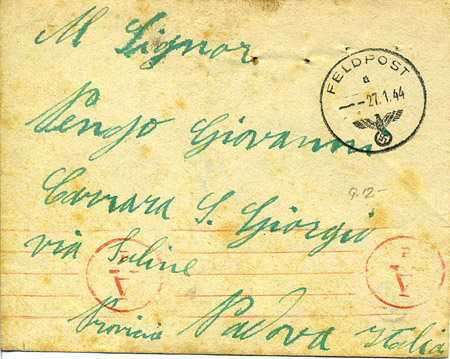 Al Signor
FELDPOST
a
--27.1.44
Pengo Giovanni
9.12-
Carrara S. Giorgio
via Saline
Provincia Padova Italia